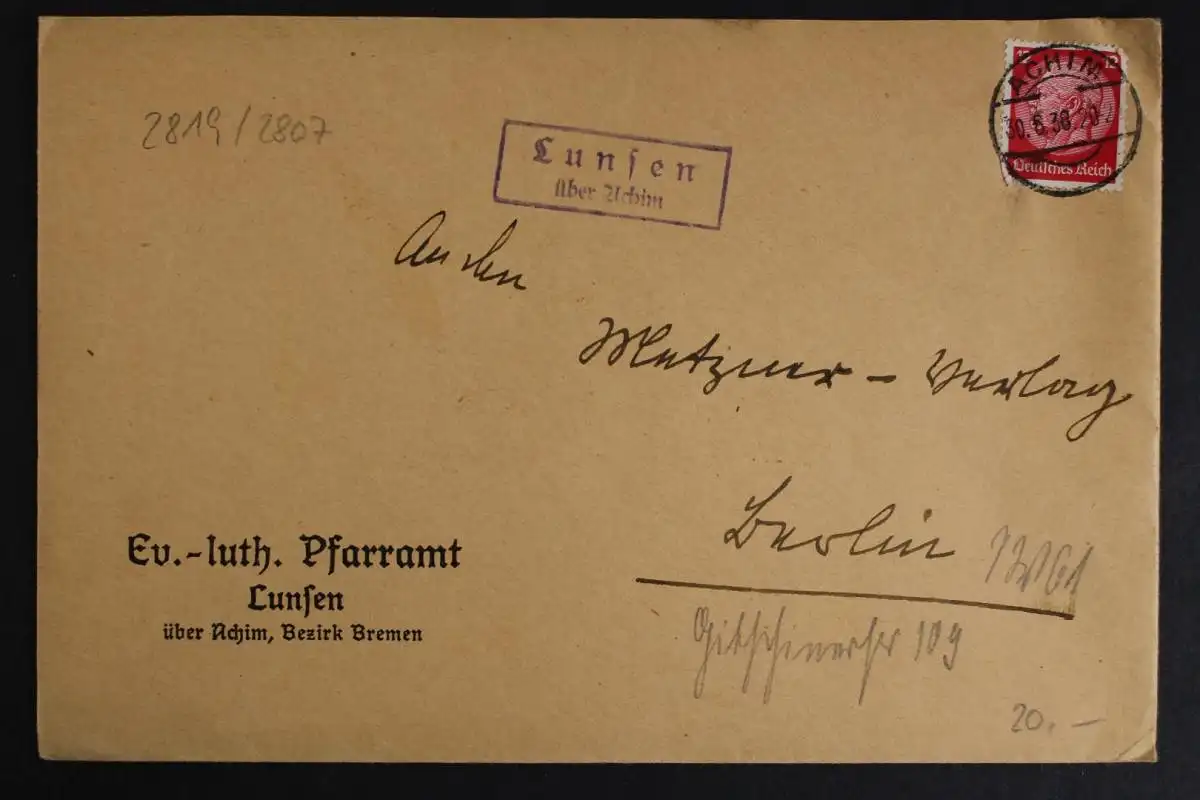 2819/2807
Lunſen
über Achim
12 12
ACHIM
30.8.38.20
Deutsches Reich
An den
Metzner-Verlag
Berlin
Gitschinerstr 109
Ev.-luth. Pfarramt
Lunſen
über Achim, Bezirk Bremen
20.—